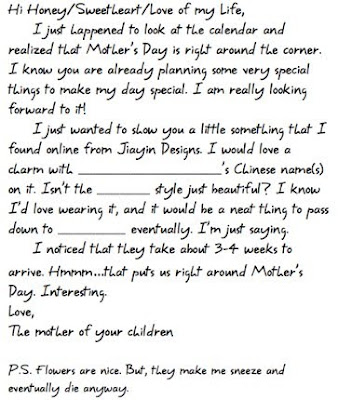 Hi Honey/Sweetheart/Love of my Life,
I just happened to look at the calendar and
realized that Mother's Day is right around the corner.
I know you are already planning some very special
things to make my day special. I am really looking
forward to it!
I just wanted to show you a little something that I
found online from Jiayin Designs. I would love a
charm with ____________________'s Chinese name(s)
on it. Isn't the __________ style just beautiful? I know
I'd love wearing it, and it would be a neat thing to pass
down to __________ eventually. I'm just saying.
I noticed that they take about 3-4 weeks to
arrive. Hmmm...that puts us right around Mother's
Day. Interesting.
Love,
The mother of your children
P.S. Flowers are nice. But, they make me sneeze and
eventually die anyway.